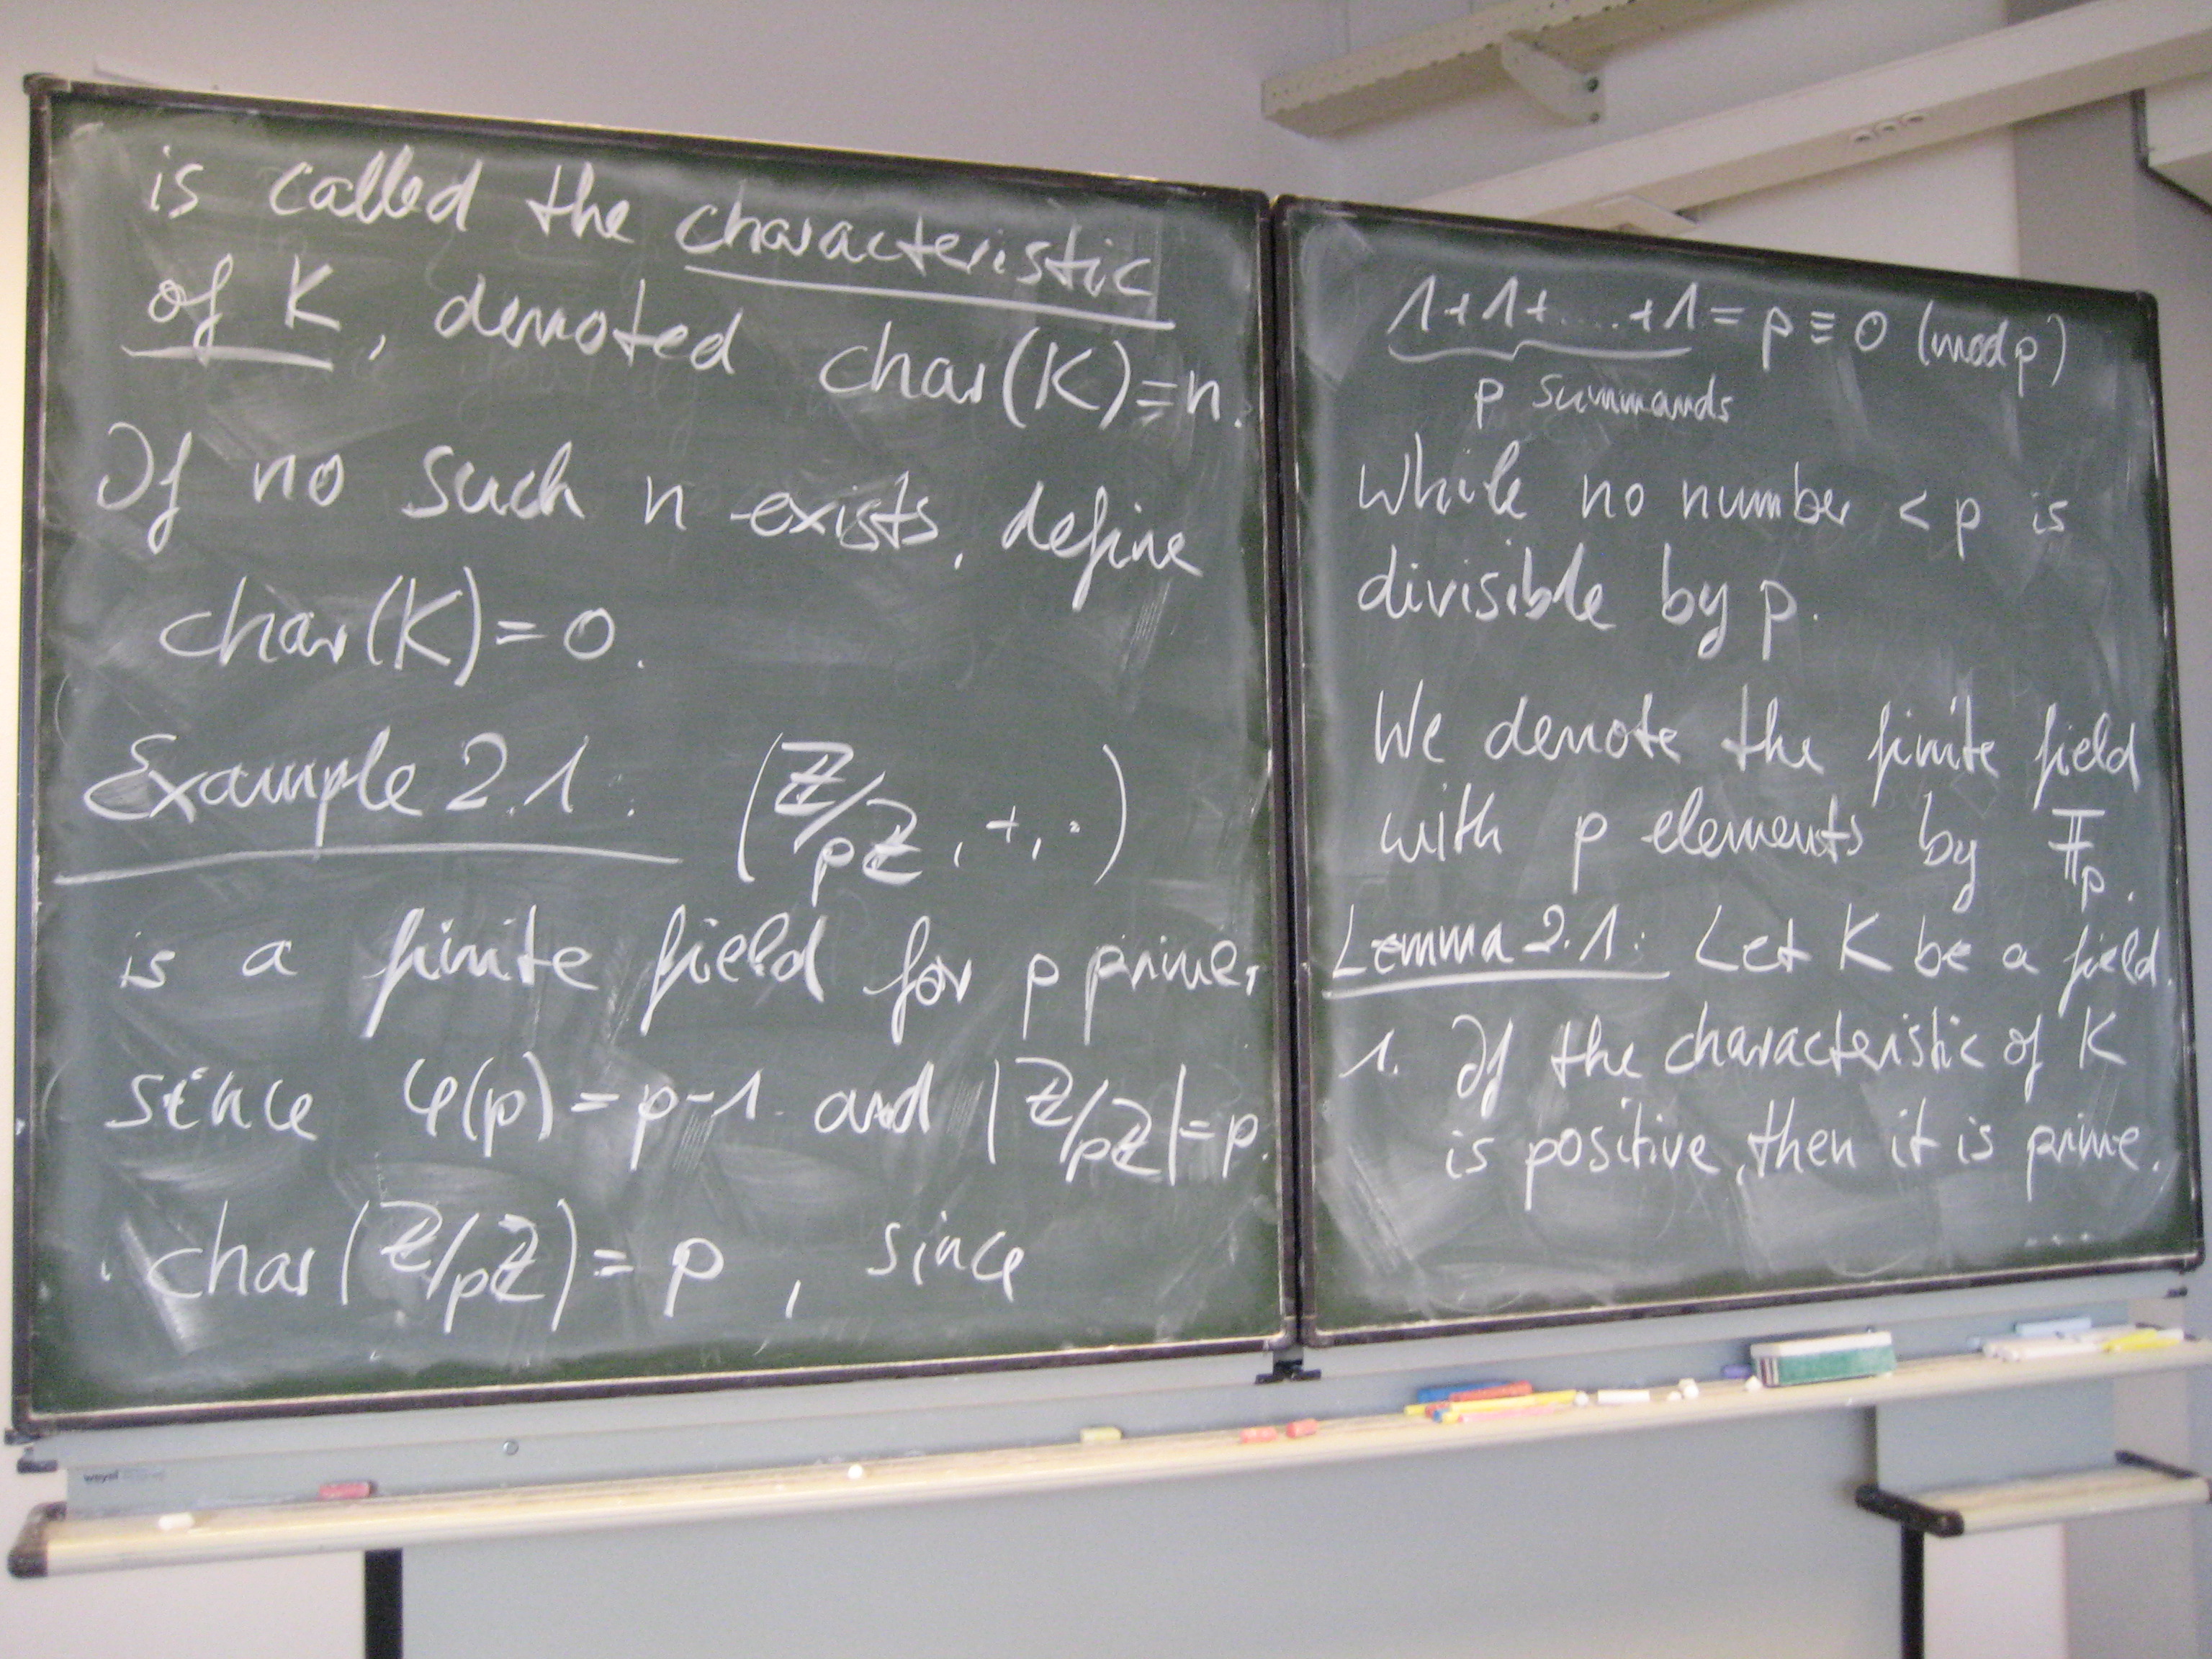 is called the characteristic
of K, denoted char(K)=n.
If no such n exists, define
char(K)=0.
Example 2.1: (ℤ/pℤ, +, ·)
is a finite field for p prime,
since φ(p)=p-1 and |ℤ/pℤ|=p.
char(ℤ/pℤ)=p, since
1+1+....+1=p≡0 (mod p)
p summands
while no number < p is
divisible by p.
We denote the finite field
with p elements by 𝔽ₚ.
Lemma 2.1: Let K be a field.
1. If the characteristic of K
is positive, then it is prime.
...
weyel